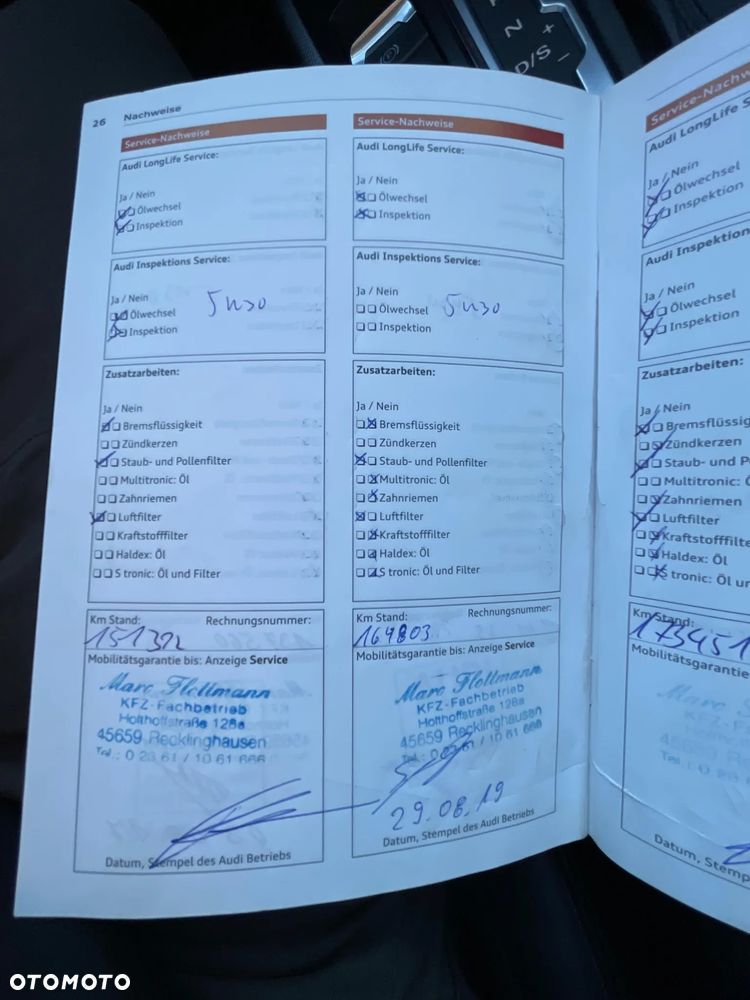 N
+
D/S
−
26 Nachweise
Service-Nachweise
Audi LongLife Service:
Ja / Nein
Ölwechsel
Inspektion
Audi Inspektions Service:
Ja / Nein
Ölwechsel
5W30
Inspektion
Zusatzarbeiten:
Ja / Nein
Bremsflüssigkeit
Zündkerzen
Staub- und Pollenfilter
Multitronic: Öl
Zahnriemen
Luftfilter
Kraftstofffilter
Haldex: Öl
S tronic: Öl und Filter
Km Stand: Rechnungsnummer:
Mobilitätsgarantie bis: Anzeige Service
Marc Flottmann
KFZ-Fachbetrieb
Holthoffstraße 128a
45659 Recklinghausen
Tel.: 0 23 61 / 10 61 666
Datum, Stempel des Audi Betriebs
Service-Nachweise
Audi LongLife Service:
Ja / Nein
Ölwechsel
Inspektion
Audi Inspektions Service:
Ja / Nein
Ölwechsel
5W30
Inspektion
Zusatzarbeiten:
Ja / Nein
Bremsflüssigkeit
Zündkerzen
Staub- und Pollenfilter
Multitronic: Öl
Zahnriemen
Luftfilter
Kraftstofffilter
Haldex: Öl
S tronic: Öl und Filter
Km Stand: Rechnungsnummer:
164803
Mobilitätsgarantie bis: Anzeige Service
Marc Flottmann
KFZ-Fachbetrieb
Holthoffstraße 128a
45659 Recklinghausen
Tel.: 0 23 61 / 10 61 666
29.08.19
Datum, Stempel des Audi Betriebs
Service-Nachw
Audi LongLife S
Ja / Nein
Ölwechsel
Inspektion
Audi Inspektion
Ja / Nein
Ölwechsel
Inspektion
Zusatzarbeiten:
Ja / Nein
Bremsflüssig
Zündkerzen
Staub- und P
Multitronic: Ö
Zahnriemen
Luftfilter
Kraftstofffilte
Haldex: Öl
S tronic: Öl un
Km Stand:
173451
Mobilitätsgarantie
Datum, Stemp
OTOMOTO